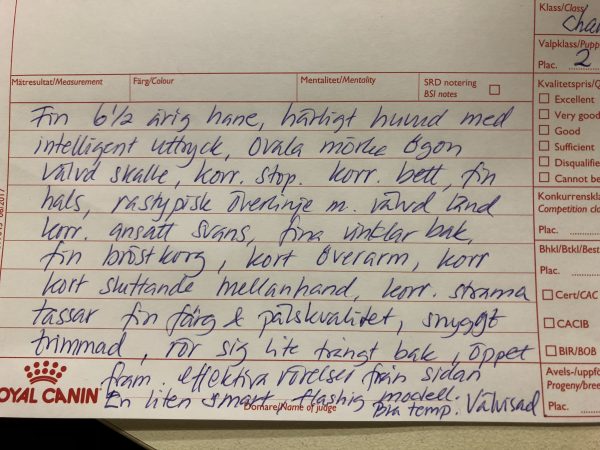 Klass/Class
cha
Valpklass/Pupp
Plac. 2
Mätresultat/Measurement Färg/Colour Mentalitet/Mentality SRD notering BSI notes
Kvalitetspris/Q
Excellent
Very good
Good
Sufficient
Disqualifie
Cannot be
Fin 6 1/2 årig hane, härligt huvud med
intelligent uttryck, Ovala mörka ögon
välvd skalle, korr. stop. korr. bett, fin
hals, rastypisk överlinje m. välvd länd
korr. ansatt svans, fina vinklar bak,
fin bröstkorg, kort överarm, korr
kort sluttande mellanhand, korr. strama
tassar fin färg & pälskvalitet, snyggt
trimmad, rör sig lite trångt bak, öppet
fram. effektiva rörelser från sidan
En liten smart, flashig modell.
Bra temp. Välvisad
Konkurrenskla
Competition cla
Plac.
Bhkl/Btkl/Best
Plac.
Cert/CAC
CACIB
BIR/BOB
Avels-/uppfö
Progeny/bree
Plac.
OYAL CANIN
Domare/Name of judge